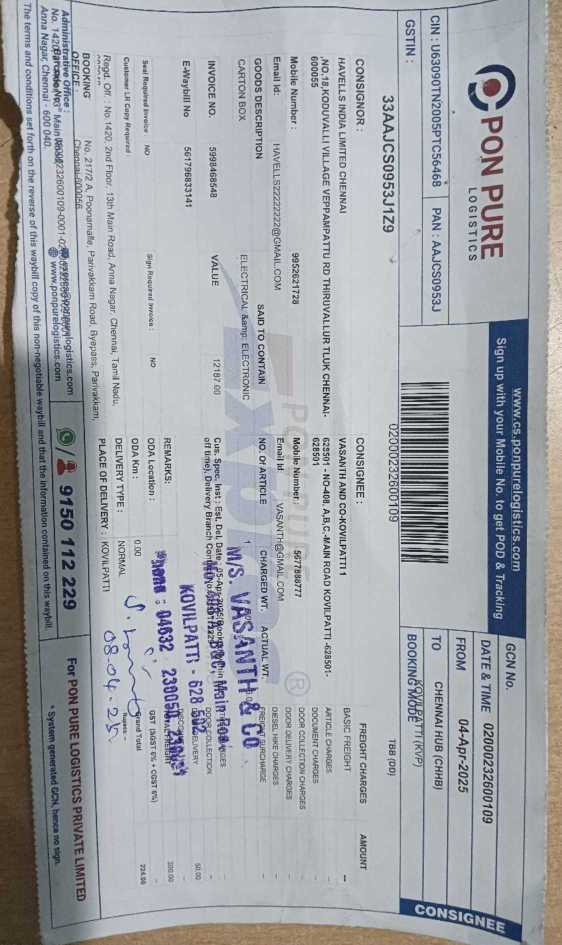 PON PURE
LOGISTICS
www.cs.ponpurelogistics.com
Sign up with your Mobile No. to get POD & Tracking
CIN : U63090TN2005PTC56468
PAN : AAJCS0953J
GSTIN :
33AAJCS0953J1Z9
0200023260010​9
GCN No.
DATE & TIME 02000232600109
FROM 04-Apr-2025
TO CHENNAI HUB (CHHB)
KOVILPATTI (KVP)
BOOKING MODE
TBB (DD)
CONSIGNEE
CONSIGNOR :
HAVELLS INDIA LIMITED CHENNAI
,NO.18,KODUVALLI VILLAGE VEPPAMPATTU RD THIRUVALLUR TLUK CHENNAI-
600055
Mobile Number : 9952621728
Email Id: HAVELLS22222222@GMAIL.COM
CONSIGNEE :
VASANTH AND CO-KOVILPATTI 1
628501 - NO-408, A,B,C,-MAIN ROAD KOVILPATTI -628501-
628501
Mobile Number 5677888777
Email Id: VASANTH@GMAIL.COM
FREIGHT CHARGES AMOUNT
BASIC FREIGHT --
ARTICLE CHARGES --
DOCUMENT CHARGES --
DOOR COLLECTION CHARGES --
DOOR DELIVERY CHARGES --
DIESEL HIKE CHARGES --
GOODS DESCRIPTION SAID TO CONTAIN NO. Of ARTICLE CHARGED WT. ACTUAL WT.
CARTON BOX ELECTRICAL &amp; ELECTRONIC 1
INVOICE NO. 5998468548 VALUE 12187.00
E-Waybill No 561796833141
Cus. Spec. Inst : Est. Del. Date :
M/S. VASANTH & CO
KOVILPATTI - 628
50.00
200.00
Seal Required Invoice NO Sign Required Invoice : NO
Customer LR Copy Required :
REMARKS:
ODA Location :
ODA Km : 0.00
DELIVERY TYPE : NORMAL
PLACE OF DELIVERY : KOVILPATTI
GST (SGST 6% + CGST 6%)
Grand Total 224.00
Rupees --
08.04.25
Regd. Off. : No.1420, 2nd Floor, 13th Main Road, Anna Nagar, Chennai, Tamil Nadu,
BOOKING OFFICE : No. 217/2 A, Poonamalle, Parivakkam Road, Byepass, Parivakkam,
Chennai-600056
Administrative Office
Anna Nagar, Chennai - 600 040.
www.ponpurelogistics.com
9150 112 229
For PON PURE LOGISTICS PRIVATE LIMITED
The terms and conditions set forth on the reverse of this waybill copy of this non-negotiable waybill and that the information contained on this waybill.
* System generated GCN, hence no sign.